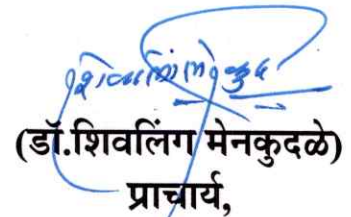 (डॉ.शिवलिंग मेनकुदळे)
प्राचार्य,